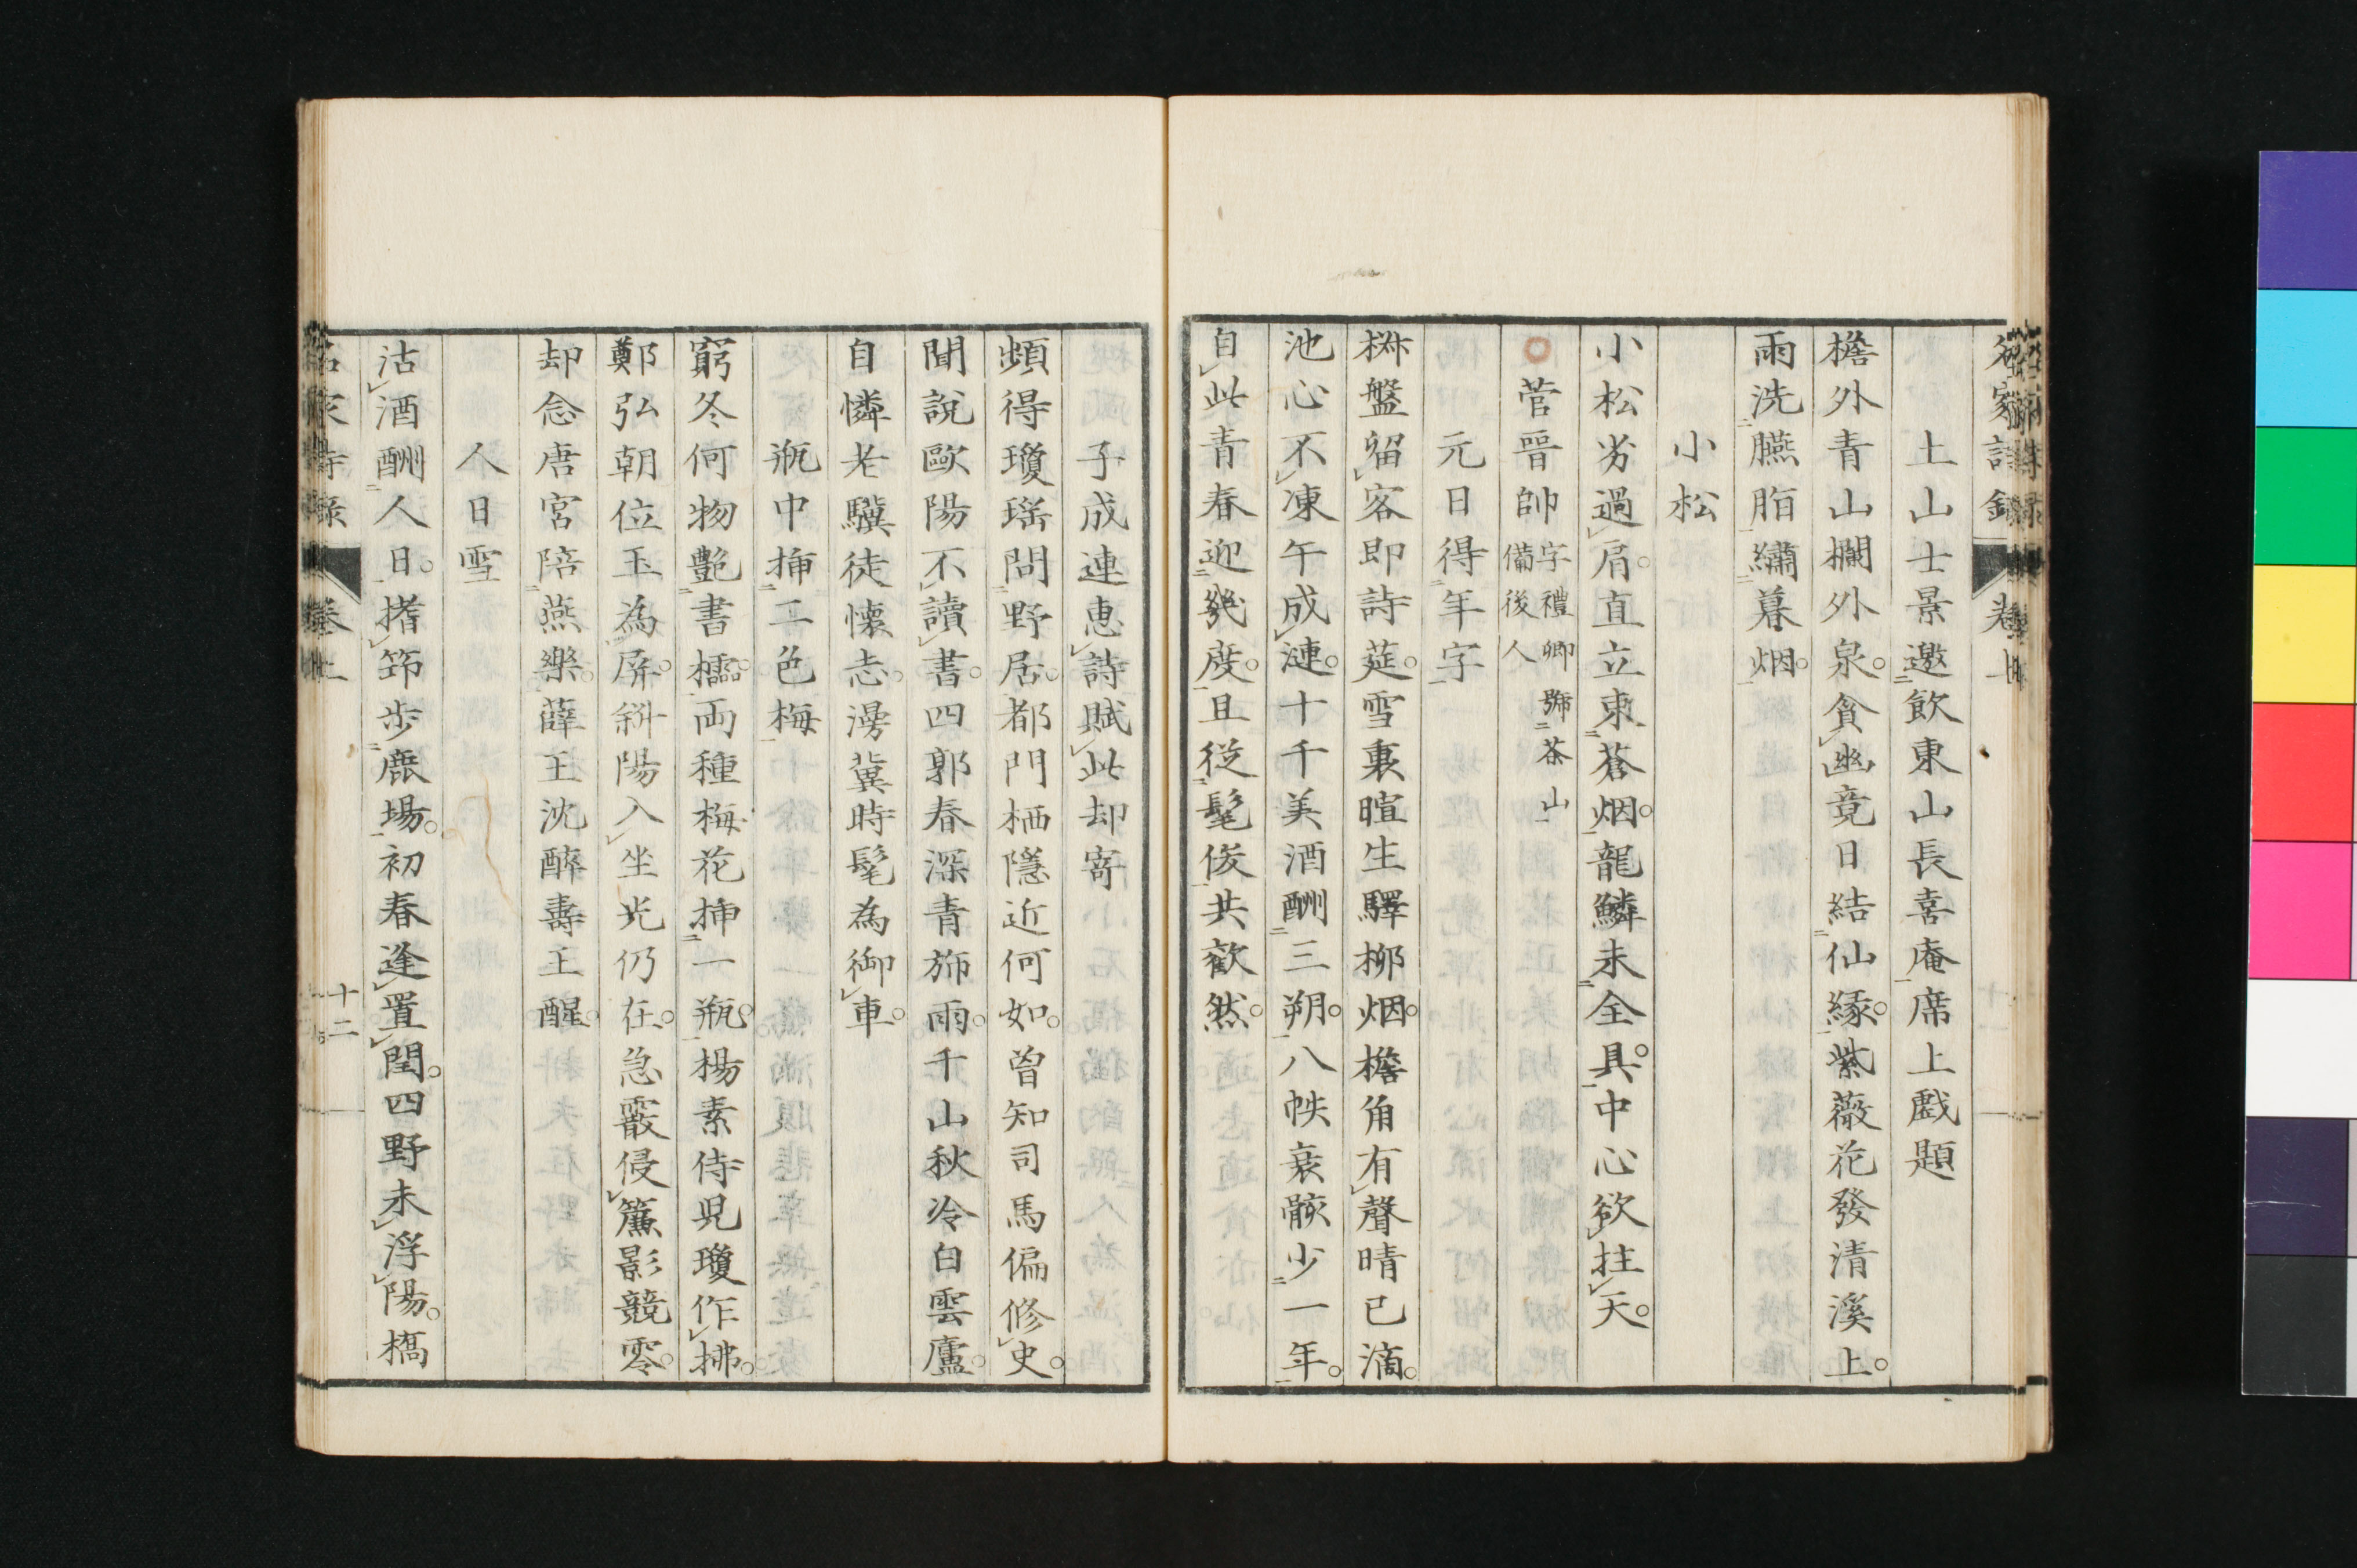 名家詩録 卷上
土山士景邀飲東山長喜庵席上戲題
檐外青山欄外泉。貪幽竟日結仙緣。紫薇花發清溪上。
雨洗臙脂繡暮烟。
小松
小松劣過肩。直立束蒼烟。龍鱗未全具。中心欲拄天。
菅晉帥 字禮卿號茶山
備後人
元日得年字
椒盤留客即詩莚。雪裏暄生驛柳烟。檐角有聲晴已滴。
池心不凍午成漣。十千美酒酬三朔。八帙衰骸少一年。
自此青春迎幾度。且從髦俊共歡然。
子成連惠詩賦此却寄
頻得瓊瑤問野居。都門栖隱近何如。曾知司馬偏修史。
聞說歐陽不讀書。四郭春深青旆雨。千山秋冷白雲廬。
自憐老驥徒懷志。漫冀時髦為御車。
瓶中挿二色梅
窮冬何物艷書櫺。兩種梅花挿一瓶。楊素侍兒瓊作拂。
鄭弘朝位玉為屏。斜陽入坐光仍在。急霰侵簾影競零。
却念唐宮陪燕樂。薛王沈醉壽王醒。
人日雪
沽酒酬人日。搘筇步鹿場。初春逢置閏。四野未浮陽。橋
名家詩録 卷上 十二